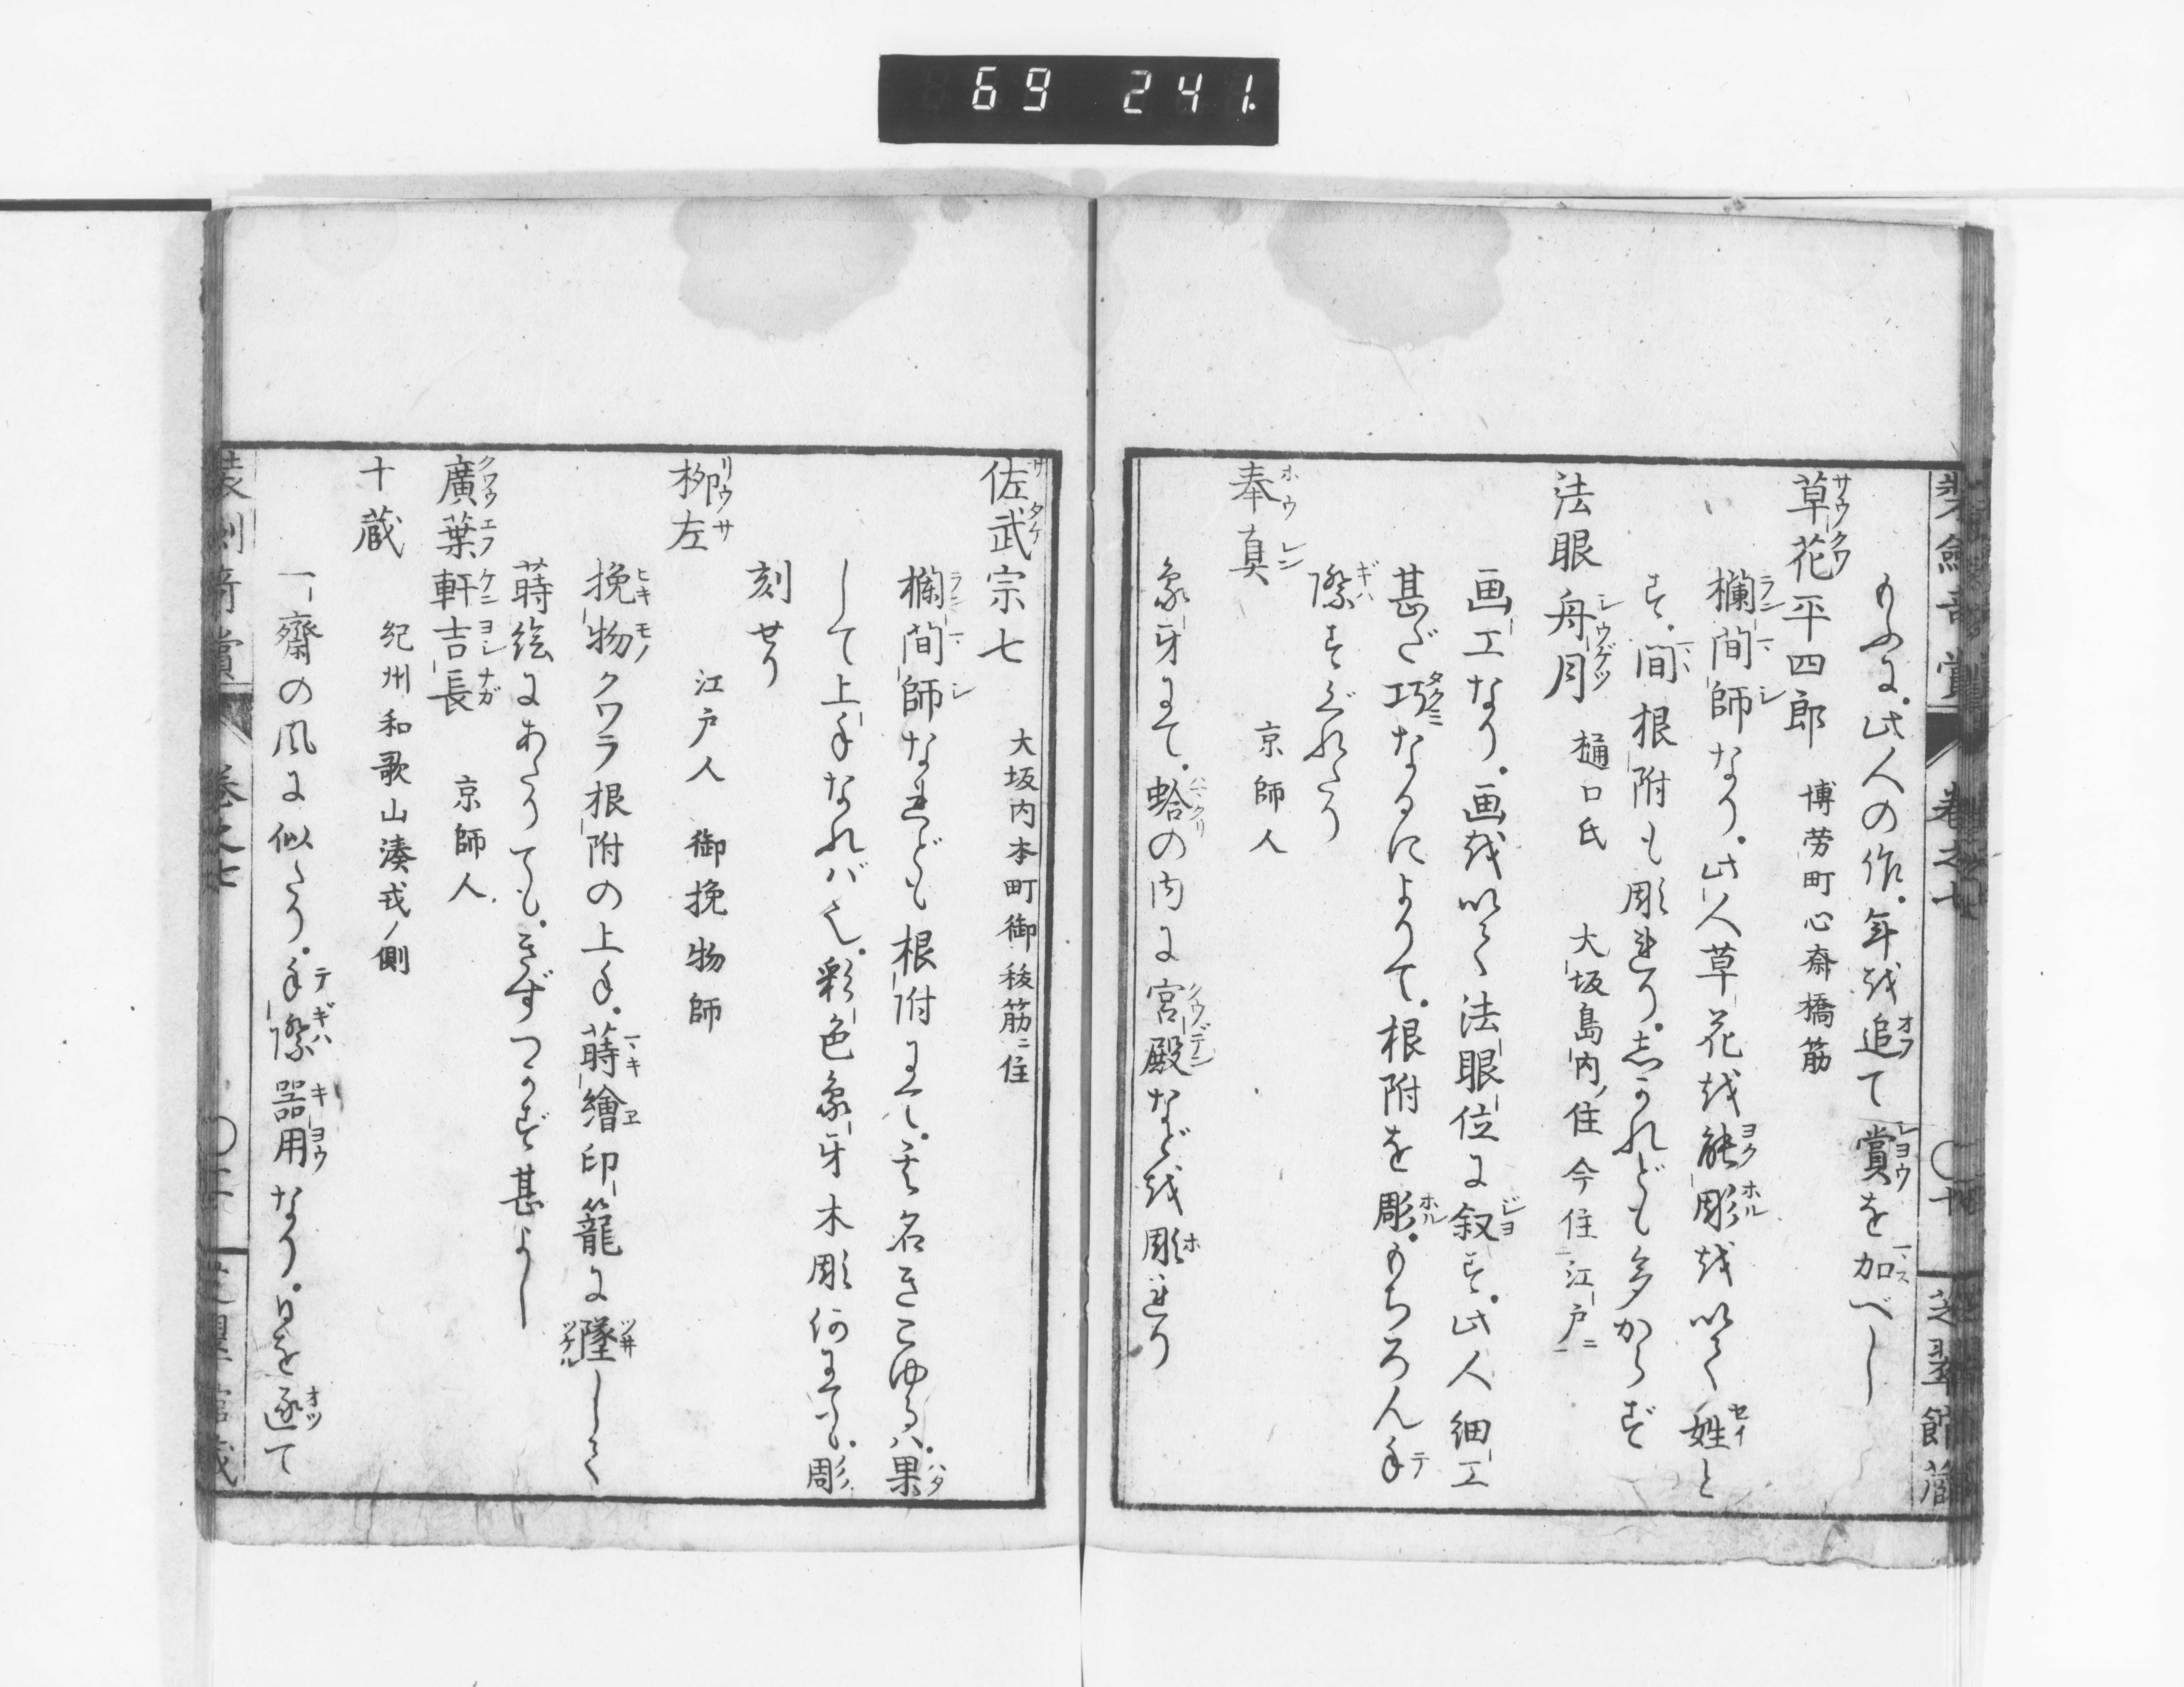 69 241.
装劔奇賞 巻之七 〇十 芝翠館蔵
ものに。此人の作。年を追て賞を加べし
草花平四郎 博労町心斎橋筋
欄間師なり。此人草花を能彫を以て姓と
す。間根附も彫れり。志かれども多からず
法眼舟月 樋口氏 大坂島内ノ住今住江戸ニ
画工なり。画を以て法眼位に叙す。此人細工
甚だ巧なるによりて。根附を彫。もちろん手
際すぐれたり
奉真 京師人
象牙にて。蛤の内に宮殿などを彫れり
佐武宗七 大坂内本町御祓筋ニ住
欄間師なれども根附にて。其名きこゆるハ。果
して上手なれバ也。彩色象牙木彫何にても。彫
刻せり
柳左 江戸人 御挽物師
挽物クワラ根附の上手。蒔繪印籠に墜して
蒔絵にあたりても。きずつかず甚よし
廣葉軒吉長 京師人
十蔵 紀州和歌山湊戎ノ側
一齋の風に似たり。手際器用なり。日を逐て
装劔奇賞 巻之七